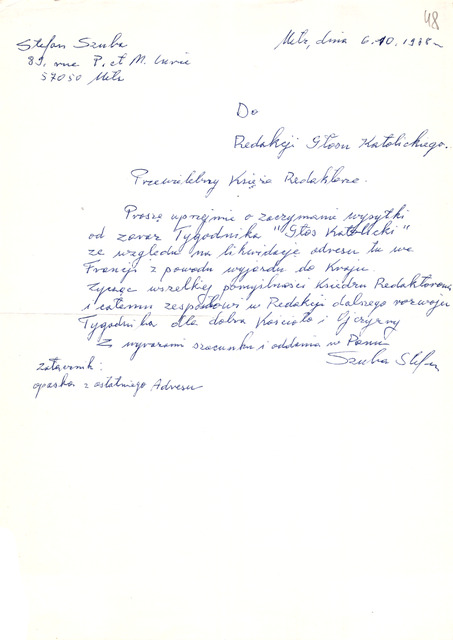 48
Stefan Szuba
89, rue P. et M. Curie
57050 Metz
Metz, dnia 6.10.1988
Do
Redakcji Głosu Katolickiego.
Przewielebny Księże Redaktorze.
Proszę uprzejmie o zaczymanie wysyłki
od zaraz Tygodnika "Głos Katolicki"
ze względu na likwidację adresu tu we
Francji z powodu wyjazdu do Kraju.
Życząc wszelkiej pomyślności Księdzu Redaktorowi
i całemu zespołowi w Redakcji dalszego rozwoju
Tygodnika dla dobra Kościoła i Ojczyzny
Z wyrazami szacunku i oddania w Panu
Szuba Stefan
załącznik:
opaska z ostatniego Adresu